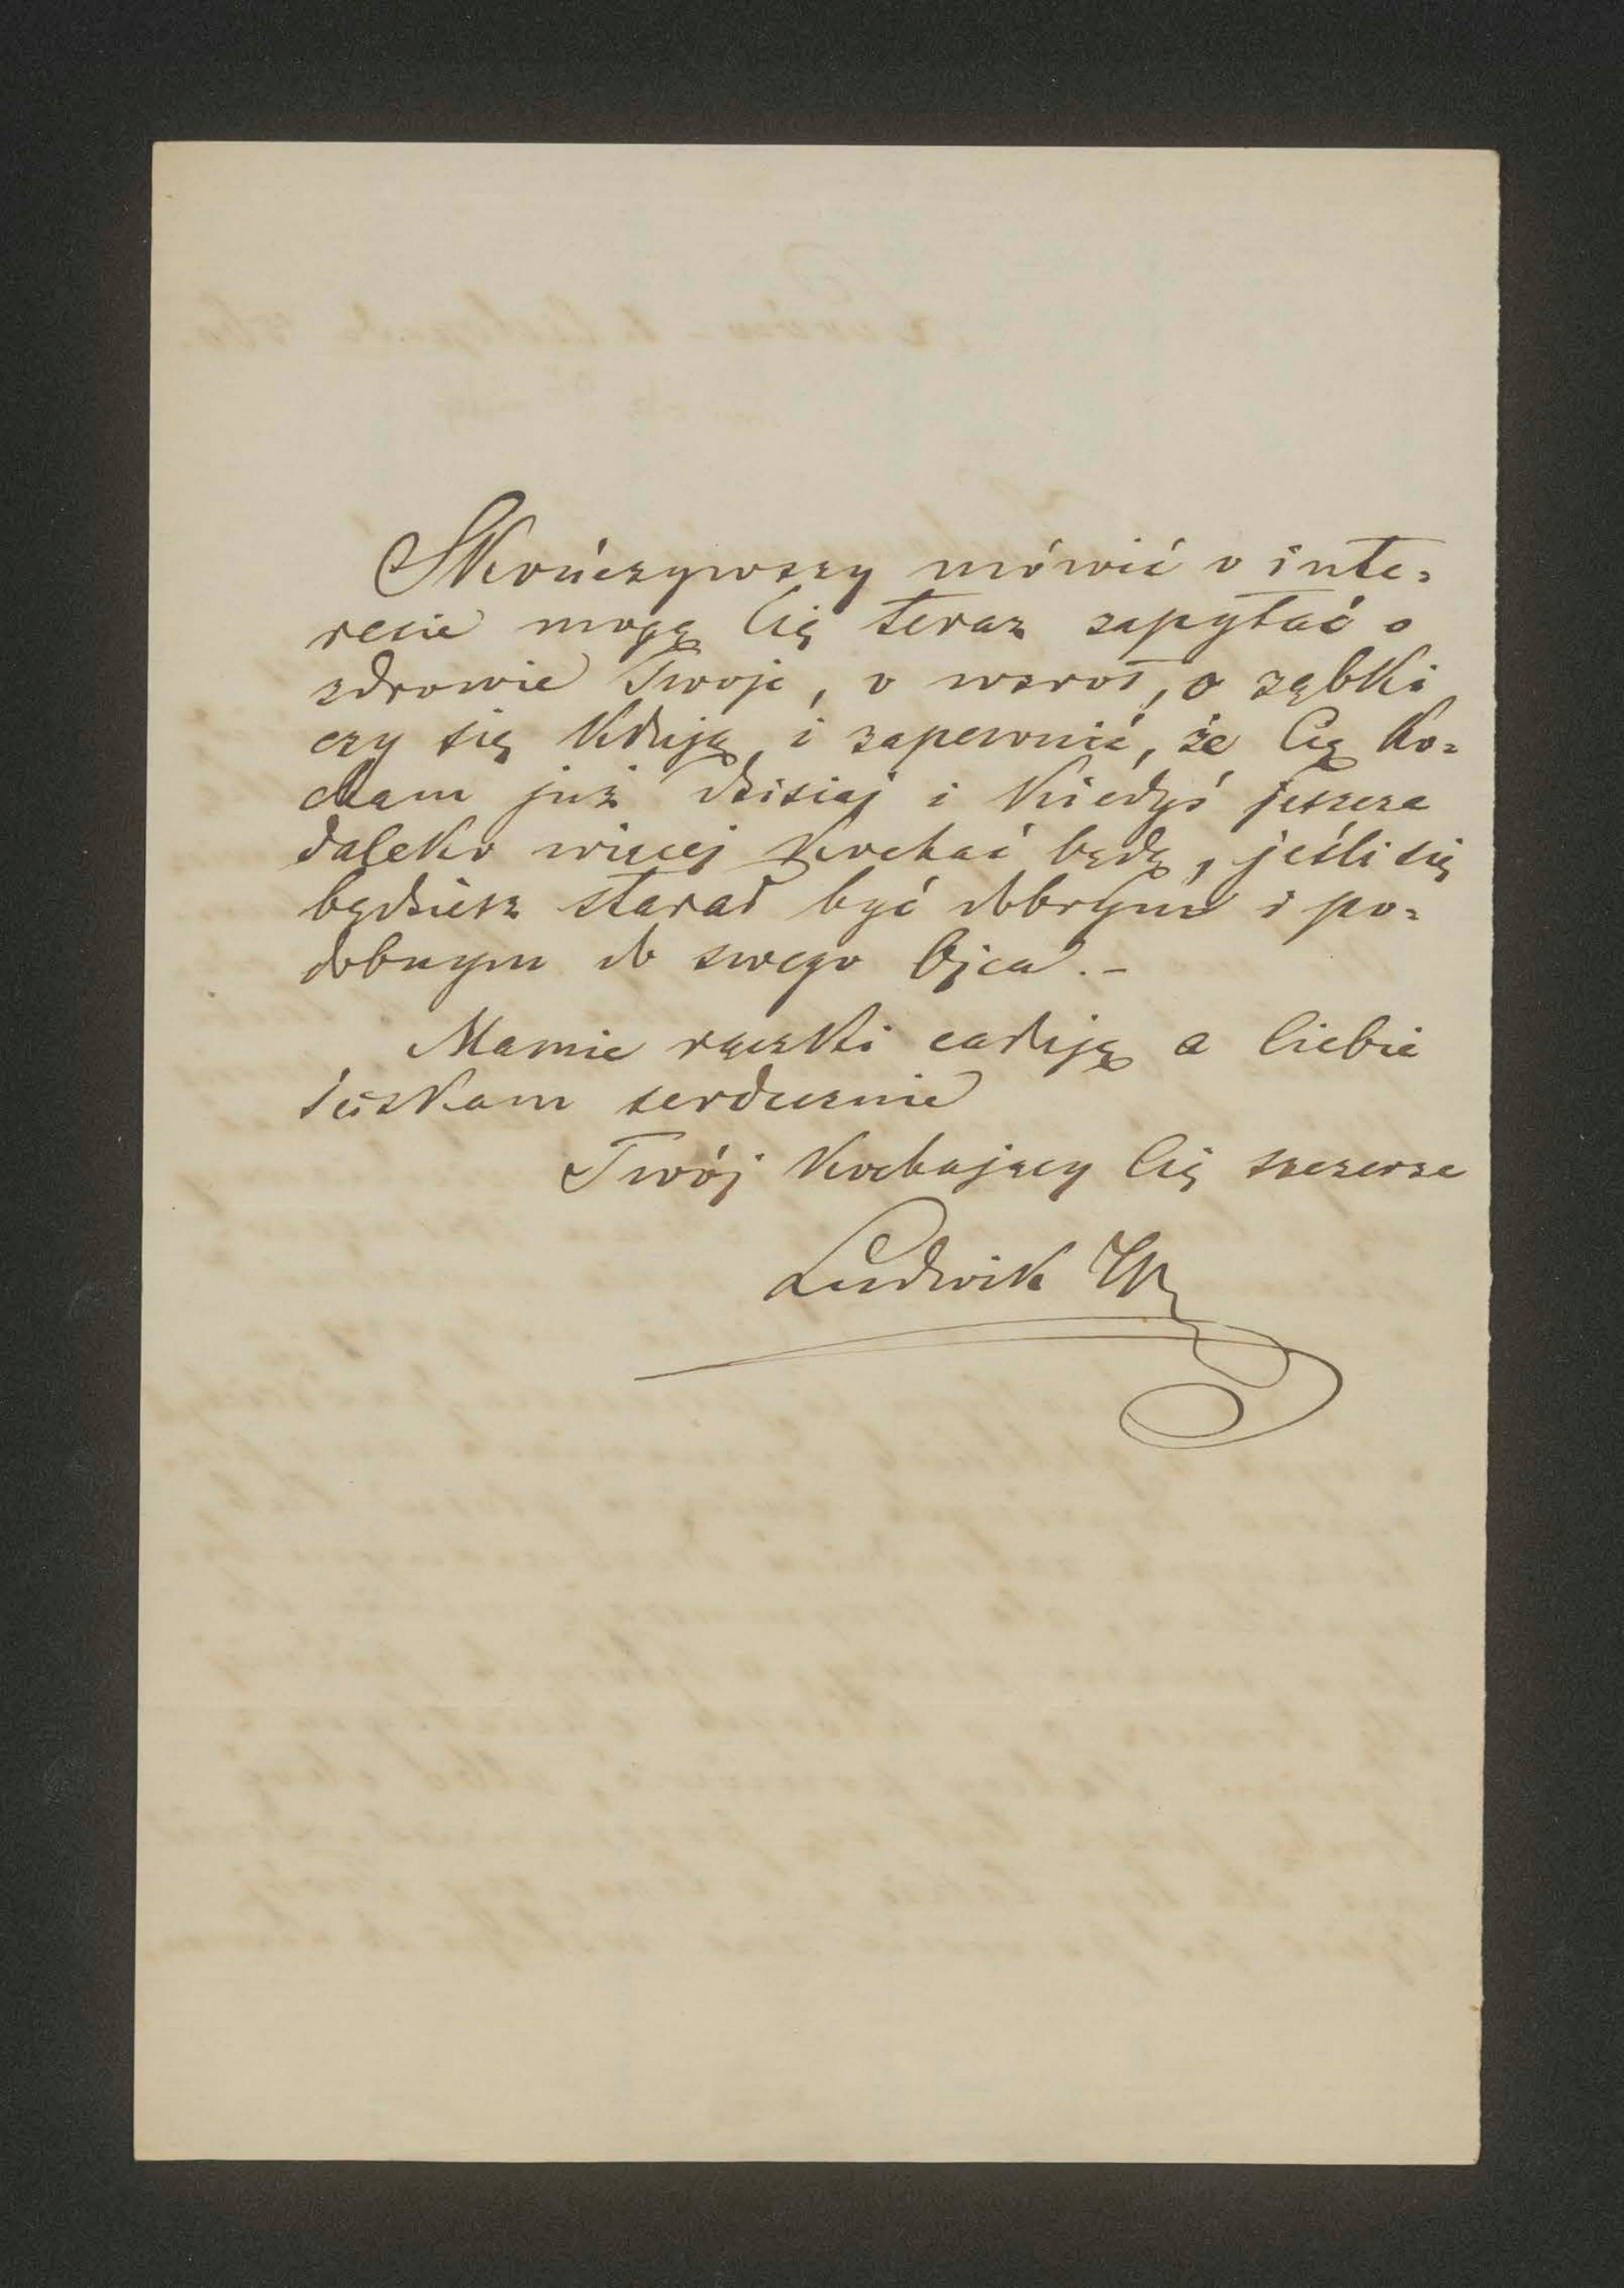 Skończywszy mówić o inte=
resie mogę Cię teraz zapytać o
zdrowie Twoje, o wzrost, o ząbki
czy się kłują, i zapewnić, że Cię ko=
cham już dzisiaj i kiedyś jeszcze
daleko więcej kochać będę, jeśli się
będziesz starał być dobrym i po=
dobnym do swego Ojca. –
Mamie rączki całuję a Ciebie
ściskam serdecznie
Twój kochający Cię szczerze
Ludwik